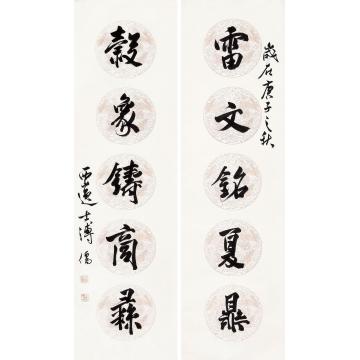 歲在庚子之秋
雷文銘夏鼎
穀象鑄商彝
西山逸士溥儒